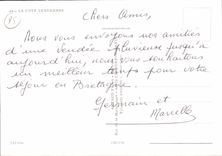 LA COTE VENDEENNE
85
Chers Amis,
Nous vous envoyons nos amitiés
d'une Vendée pluvieuse jusqu'à
aujourd'hui, nous vous souhaitons
un meilleur temps pour votre
séjour en Bretagne.
Germain et
Marcelle